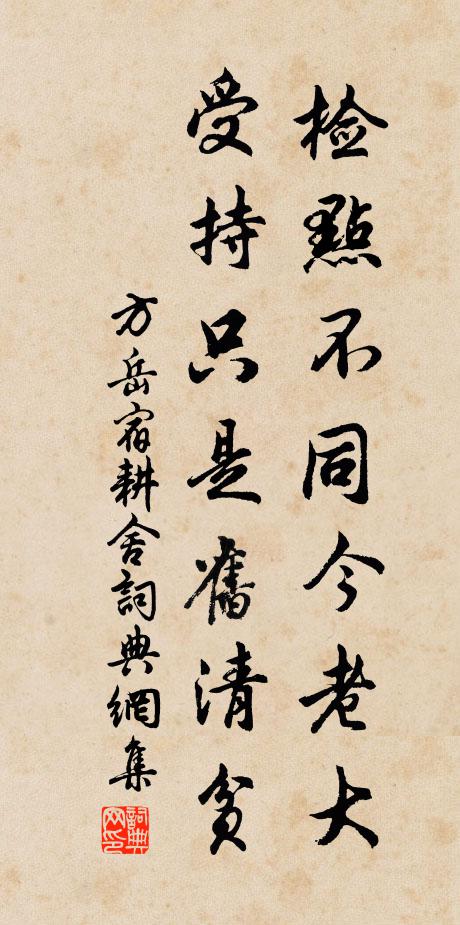 检點不同今老大
受持只是舊清貧
方岳宿耕舍詞典網集
詞典網印